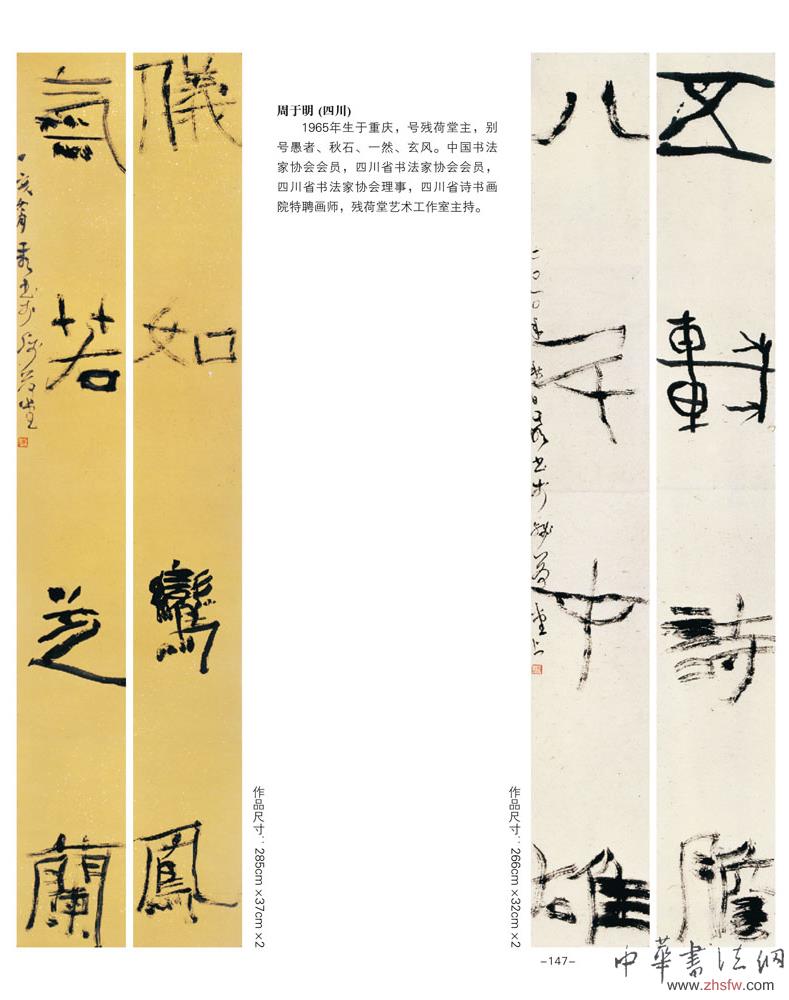 儀如鸞鳳
氣若芝蘭
周于明 (四川)
1965年生于重庆，号残荷堂主，别
号愚者、秋石、一然、玄风。中国书法
家协会会员，四川省书法家协会会员，
四川省书法家协会理事，四川省诗书画
院特聘画师，残荷堂艺术工作室主持。
作品尺寸：285cm×37cm×2
五車詩膽
八斗才雄
二〇一〇年秋日愚书于残荷堂上
作品尺寸：266cm×32cm×2
-147-
中華書法網
www.zhsfw.com